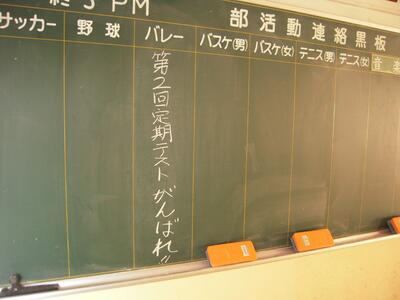 部活動連絡黒板
PM
サッカー
野球
バレー
バスケ(男)
バスケ(女)
テニス(男)
テニス(女)
音楽
第2回定期テストがんばれ!!